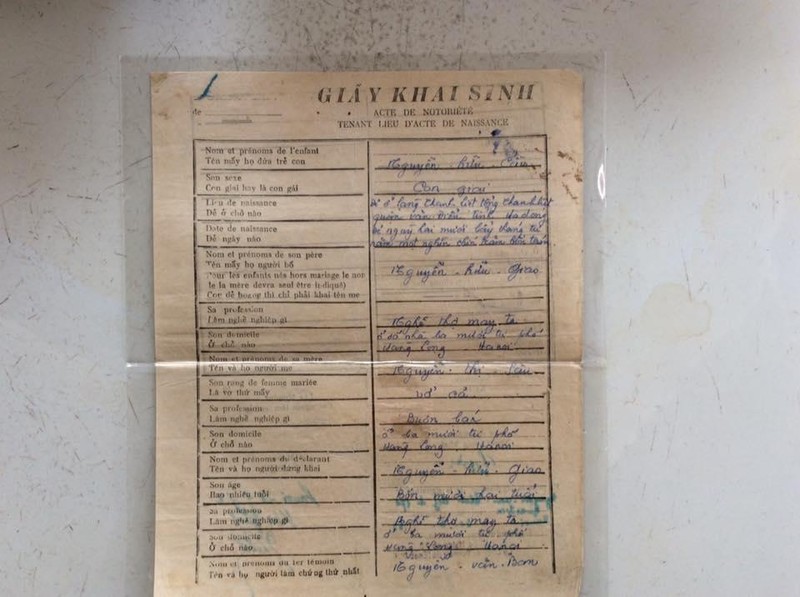 de
GIẤY KHAI SINH
ACTE DE NOTORIÉTÉ
TENANT LIEU D'ACTE DE NAISSANCE
Nom et prénoms de l'enfant
Tên mấy họ đứa trẻ con
Nguyễn Hữu
Son sexe
Con giai hay là con gái
Con giai
Lieu de naissance
Đẻ ở chỗ nào
Đẻ ở làng Thanh Liệt tổng Thanh Liệt
quận Văn Điển tỉnh Hà Đông
Date de naissance
Đẻ ngày nào
Đẻ ngày hai mươi bảy tháng tư
năm một nghìn chín trăm bốn
Nom et prénoms de son père
Tên mấy họ người bố
Pour les enfants nés hors mariage le nom
le la mère devra seul être indiqué)
Con đẻ hoang thì chỉ phải khai tên mẹ
Nguyễn - Hữu - Giao
Sa profession
Làm nghề nghiệp gì
Nghề thợ may ta
Son domicile
Ở chỗ nào
ở số nhà ba mươi tư phố
Hàng Lọng Hanoi
Nom et prénoms de sa mère
Tên và họ người mẹ
Nguyễn - thị -
Son rang de femme mariée
Là vợ thứ mấy
vợ cả
Sa profession
Làm nghề nghiệp gì
Buôn bán
Son domicile
Ở chỗ nào
ở ba mươi tư phố
Hàng Lọng Hanoi
Nom et prénoms du déclarant
Tên và họ người đứng khai
Nguyễn - Hữu - Giao
Son âge
Bao nhiêu tuổi
Bốn mươi hai tuổi
Sa profession
Làm nghề nghiệp gì
Nghề thợ may ta
Son domicile
Ở chỗ nào
ở ba mươi tư phố
Hàng Lọng Hanoi
Nom et prénoms du 1er témoin
Tên và họ người làm chứng thứ nhất
Nguyễn - văn -